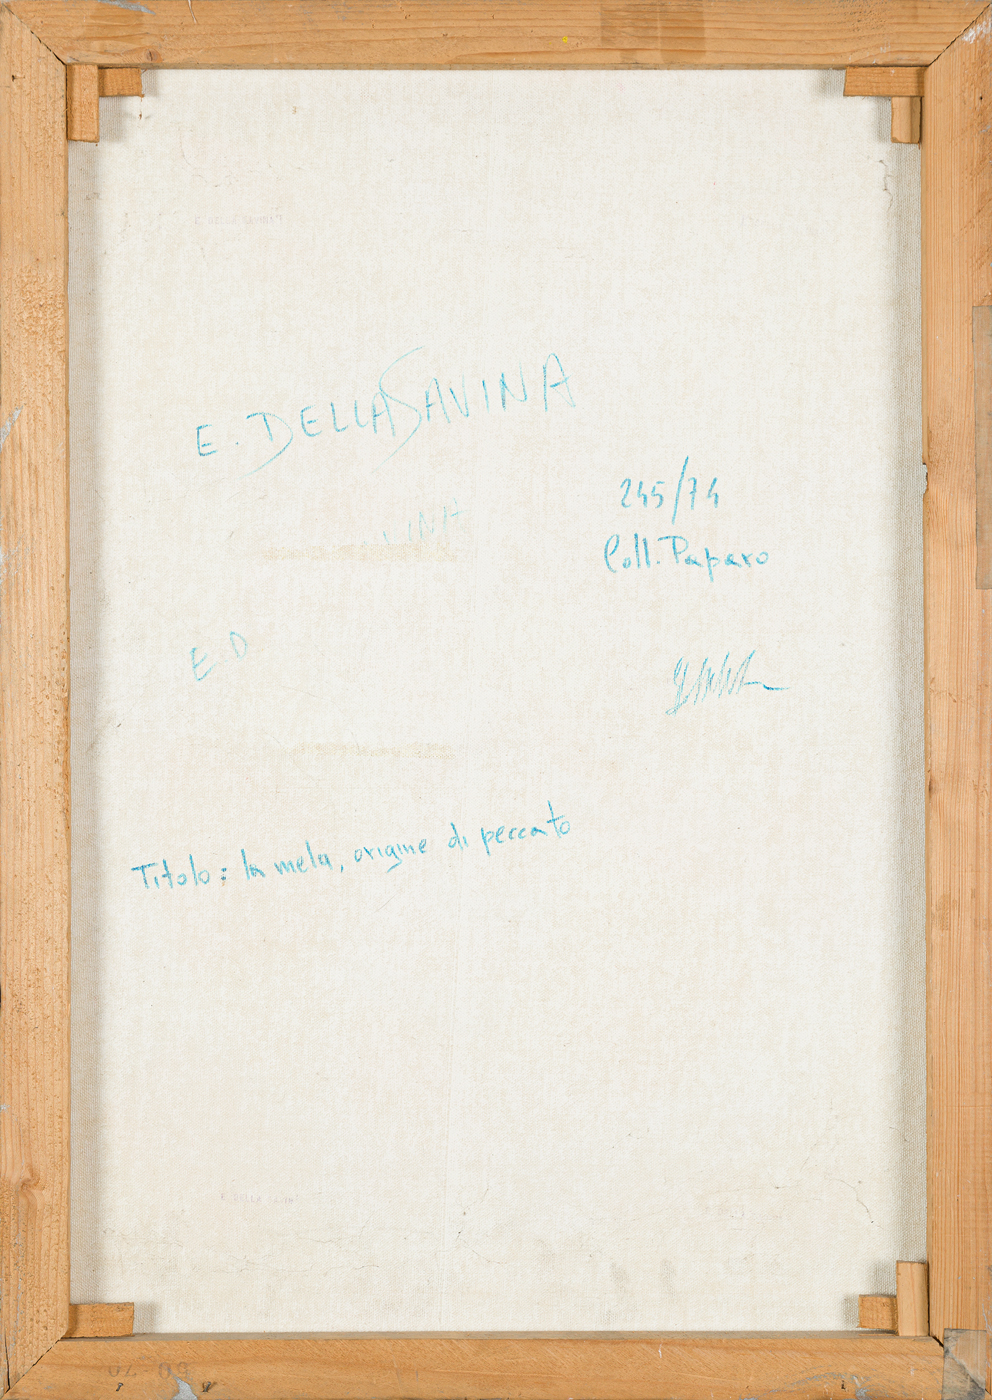 E. DELLA SAVINA
245/74
Coll. Paparo
VINA
E D
Titolo: la mela, origine di peccato
50 70